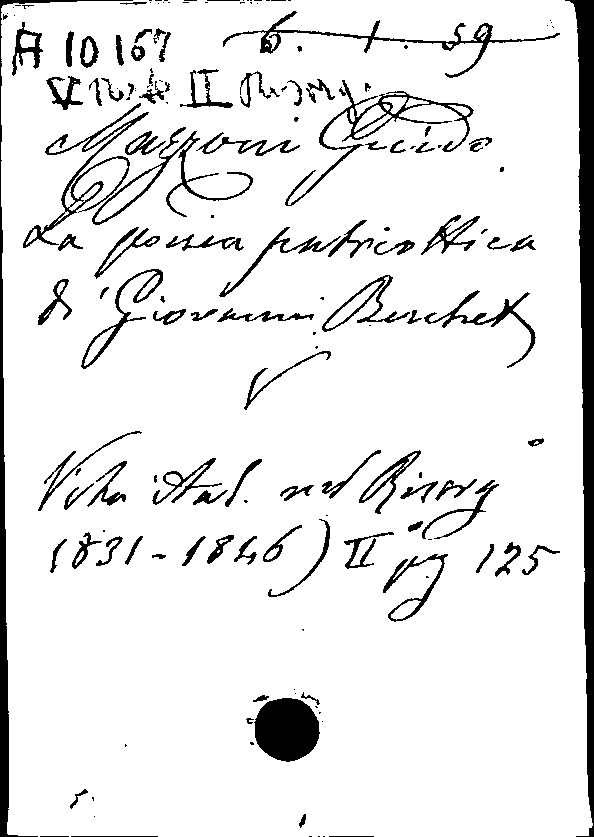 A 10 167 6. 1. 59
V II Risorg.
Mazzoni Guido
La poesia patriottica
di Giovanni Berchet
Vita ital. nel Risorg°
(1831-1846) II° pg 125